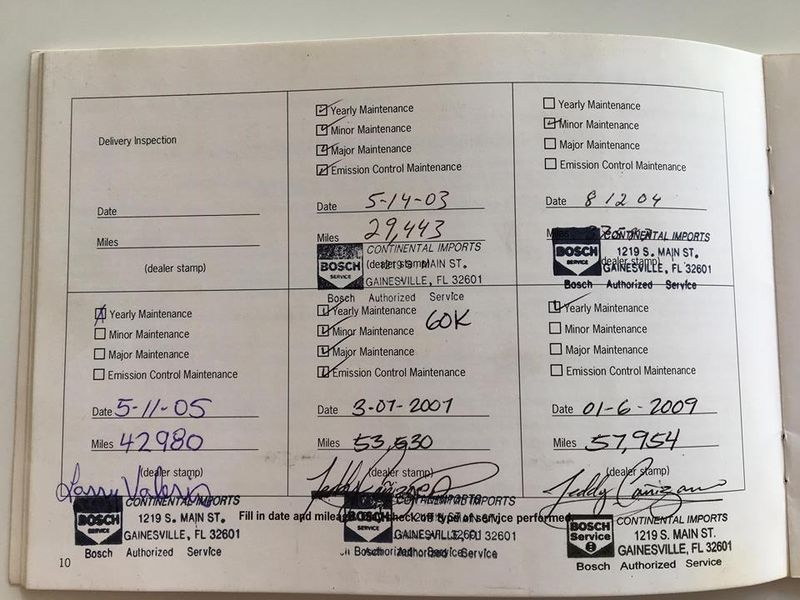 Delivery Inspection
Date
Miles
(dealer stamp)
Yearly Maintenance
Minor Maintenance
Major Maintenance
Emission Control Maintenance
Date 5-14-03
Miles 29,443
(dealer stamp)
BOSCH
SERVICE
CONTINENTAL IMPORTS
1219 S. MAIN ST.
GAINESVILLE, FL 32601
Bosch Authorized Service
Yearly Maintenance
Minor Maintenance
Major Maintenance
Emission Control Maintenance
Date 8 12 04
Miles
(dealer stamp)
BOSCH
SERVICE
CONTINENTAL IMPORTS
1219 S. MAIN ST.
GAINESVILLE, FL 32601
Bosch Authorized Service
Yearly Maintenance
Minor Maintenance
Major Maintenance
Emission Control Maintenance
Date 5-11-05
Miles 42980
(dealer stamp)
Larry
BOSCH
SERVICE
CONTINENTAL IMPORTS
1219 S. MAIN ST.
GAINESVILLE, FL 32601
Bosch Authorized Service
Yearly Maintenance
60K
Minor Maintenance
Major Maintenance
Emission Control Maintenance
Date 3-07-2007
Miles 53,530
(dealer stamp)
BOSCH
Yearly Maintenance
Minor Maintenance
Major Maintenance
Emission Control Maintenance
Date 01-6-2009
Miles 57,954
(dealer stamp)
Teddy Cañizares
BOSCH
Service
CONTINENTAL IMPORTS
1219 S. MAIN ST.
GAINESVILLE, FL 32601
Bosch Authorized Service
Fill in date and mileage check type of service performed
10